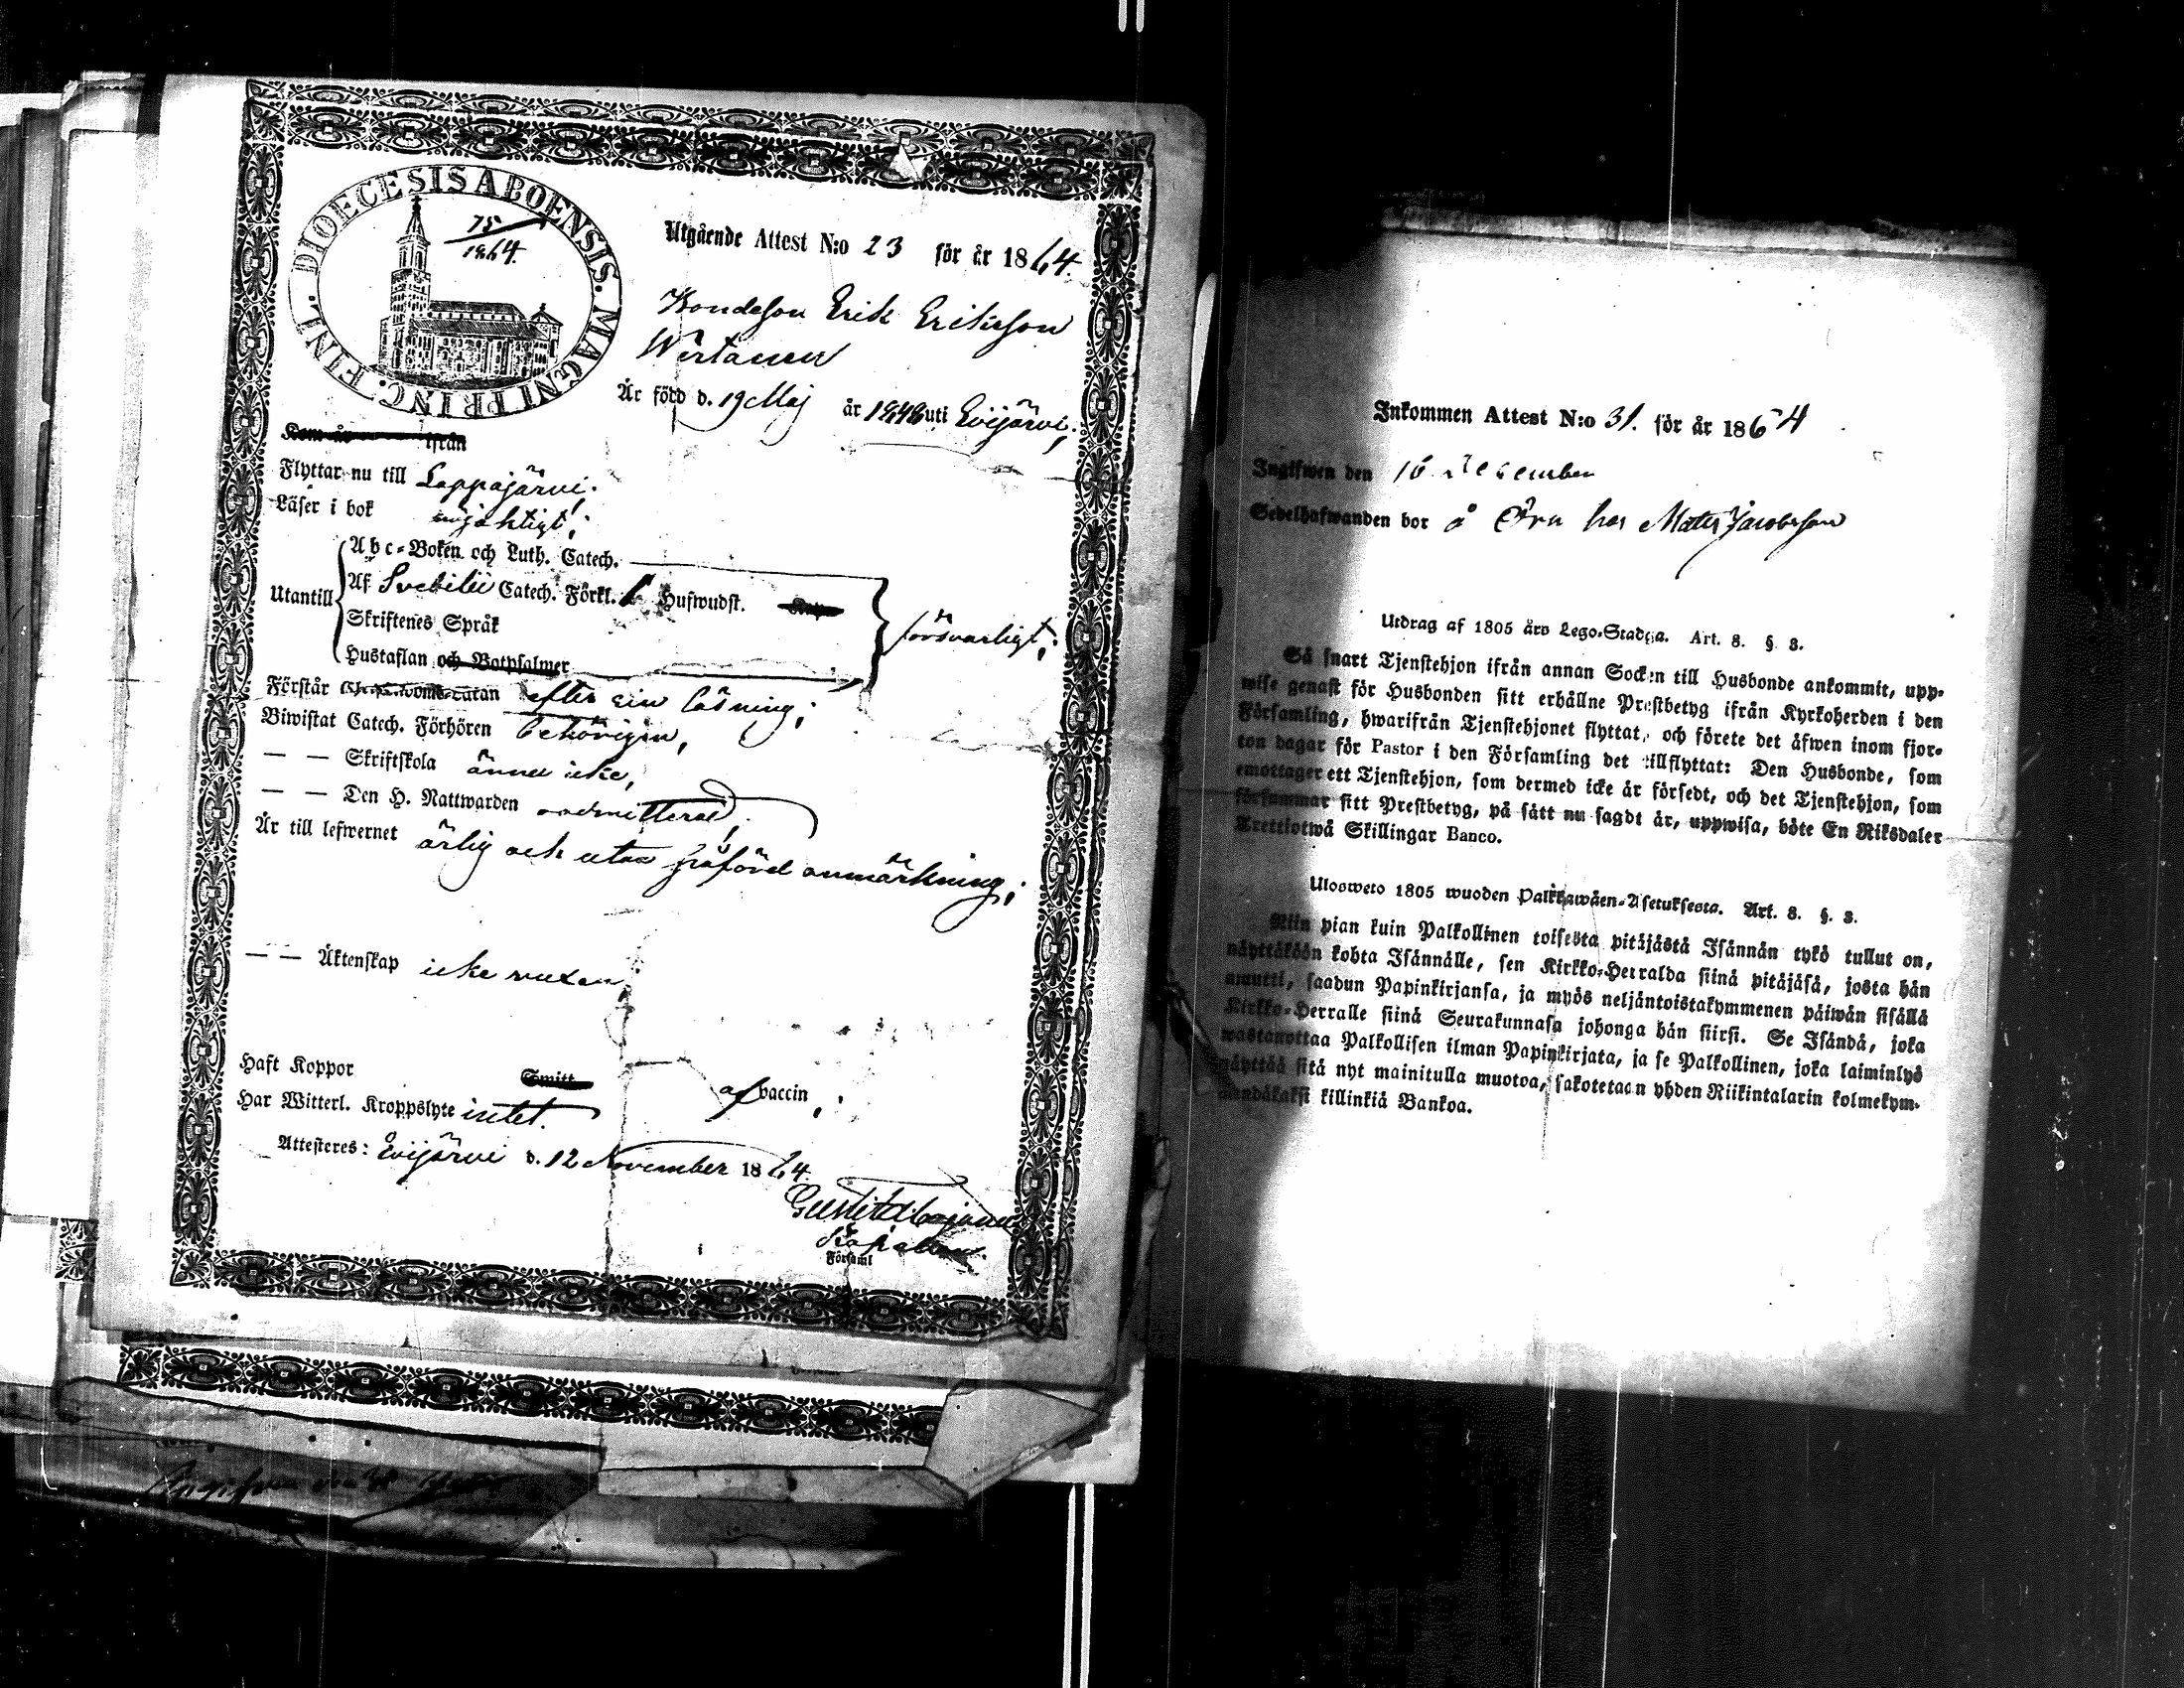 DIOECESIS ABOENSIS. MAGNI PRINC. FINL.
75
1864.
Utgående Attest N:o 23 för år 1864.
Bondeson Erik Erikson
Wirtanen
Är född d. 19 Maj år 1846 uti Evijärvi;
ifrån
Flyttar nu till Lappajärvi;
Läser i bok möjeligt;
Abc-Boken och Luth. Catech.
Utantill Af Svebilii Catech. Förkl. Hufwudst.
Skriftenes Språk
Hustaflan och Botpsalmer
försvarligt;
Förstår efter sin läsning;
Biwistat Catech. Förhören behörigen,
— — Skriftskola ännu icke,
— — Den H. Nattwarden oadmitterad.
Är till lefwernet ärlig och utan påförd anmärkning;
— — Äktenskap icke veterl.
Haft Koppor Smitt. af vaccin;
Har Witterl. Kroppslyte intet.
Attesteres: Evijärvi d. 12 November 1864.
Kapellan.
Församl
Inkommen Attest N:o 31. för år 1864
Ingifwen den 16 December
Sedelhafwanden bor å Öru hos Matts Jacobsson
Utdrag af 1805 års Lego-Stadga. Art. 8. § 3.
Så snart Tjenstehjon ifrån annan Socken till Husbonde ankommit, upp-
wise genast för Husbonden sitt erhållne Prestbetyg ifrån Kyrkoherden i den
Församling, hwarifrån Tjenstehjonet flyttat, och förete det äfwen inom fjor-
ton dagar för Pastor i den Församling det tillflyttat: Den Husbonde, som
emottager ett Tjenstehjon, som dermed icke är försedt, och det Tjenstehjon, som
försummar sitt Prestbetyg, på sätt nu sagdt är, uppwisa, böte En Riksdaler
Trettiotwå Skillingar Banco.
Ulosweto 1805 wuoden Palkkawäen-Asetuksesta. Art. 8. §. 3.
Niin pian kuin Palkollinen toisesta pitäjästä Isännän tykö tullut on,
näyttäköön kohta Isännälle, sen Kirkko-Herralda siinä pitäjäsä, josta hän
muutti, saadun Papinkirjansa, ja myös neljäntoistakymmenen päiwän sisällä
Kirkko-Herralle siinä Seurakunnasa johonga hän siirsi. Se Isändä, joka
wastanottaa Palkollisen ilman Papinkirjata, ja se Palkollinen, joka laiminlyö
näyttää sitä nyt mainitulla muotoa, sakotetaan yhden Riikintalarin kolmekym-
mendäkaksi killinkiä Bankoa.